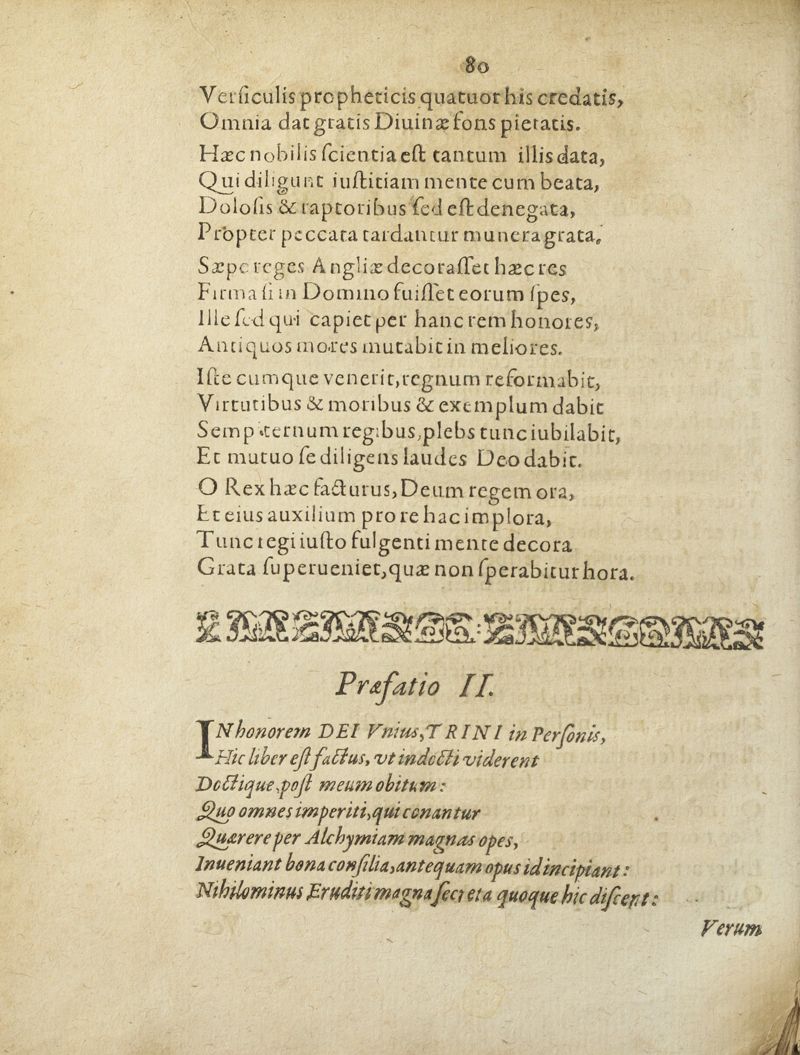 80
Verſiculis propheticis quatuor his credatis,
Omnia dat gratis Diuinæ fons pietatis.
Hæc nobilis ſcientia eſt tantum illis data,
Qui diligunt iuſtitiam mente cum beata,
Doloſis & raptoribus ſed eſt denegata,
Propter peccata tardantur munera grata.
Sæpe reges Angliæ decoraſſet hæc res
Firma ſi in Domino fuiſſet eorum ſpes,
Ille ſed qui capiet per hanc rem honores,
Antiquos mores mutabit in meliores.
Iſte cumque venerit, regnum reformabit,
Virtutibus & moribus & exemplum dabit
Sempiternum regibus, plebs tunc iubilabit,
Et mutuo ſe diligens laudes Deo dabit.
O Rex hæc facturus, Deum regem ora,
Et eius auxilium pro re hac implora,
Tunc regi iuſto fulgenti mente decora
Grata ſuperueniet, quæ non ſperabitur hora.
Præfatio II.
IN honorem DEI Vnius, TRINI in Perſonis,
Hic liber eſt factus, vt indocti viderent
Doctique, poſt meum obitum:
Quo omnes imperiti, qui conantur
Quærere per Alchymiam magnas opes,
Inueniant bona conſilia, antequam opus id incipiant:
Nihilominus Eruditi magna ſecreta quoque hic diſcent:
Verum